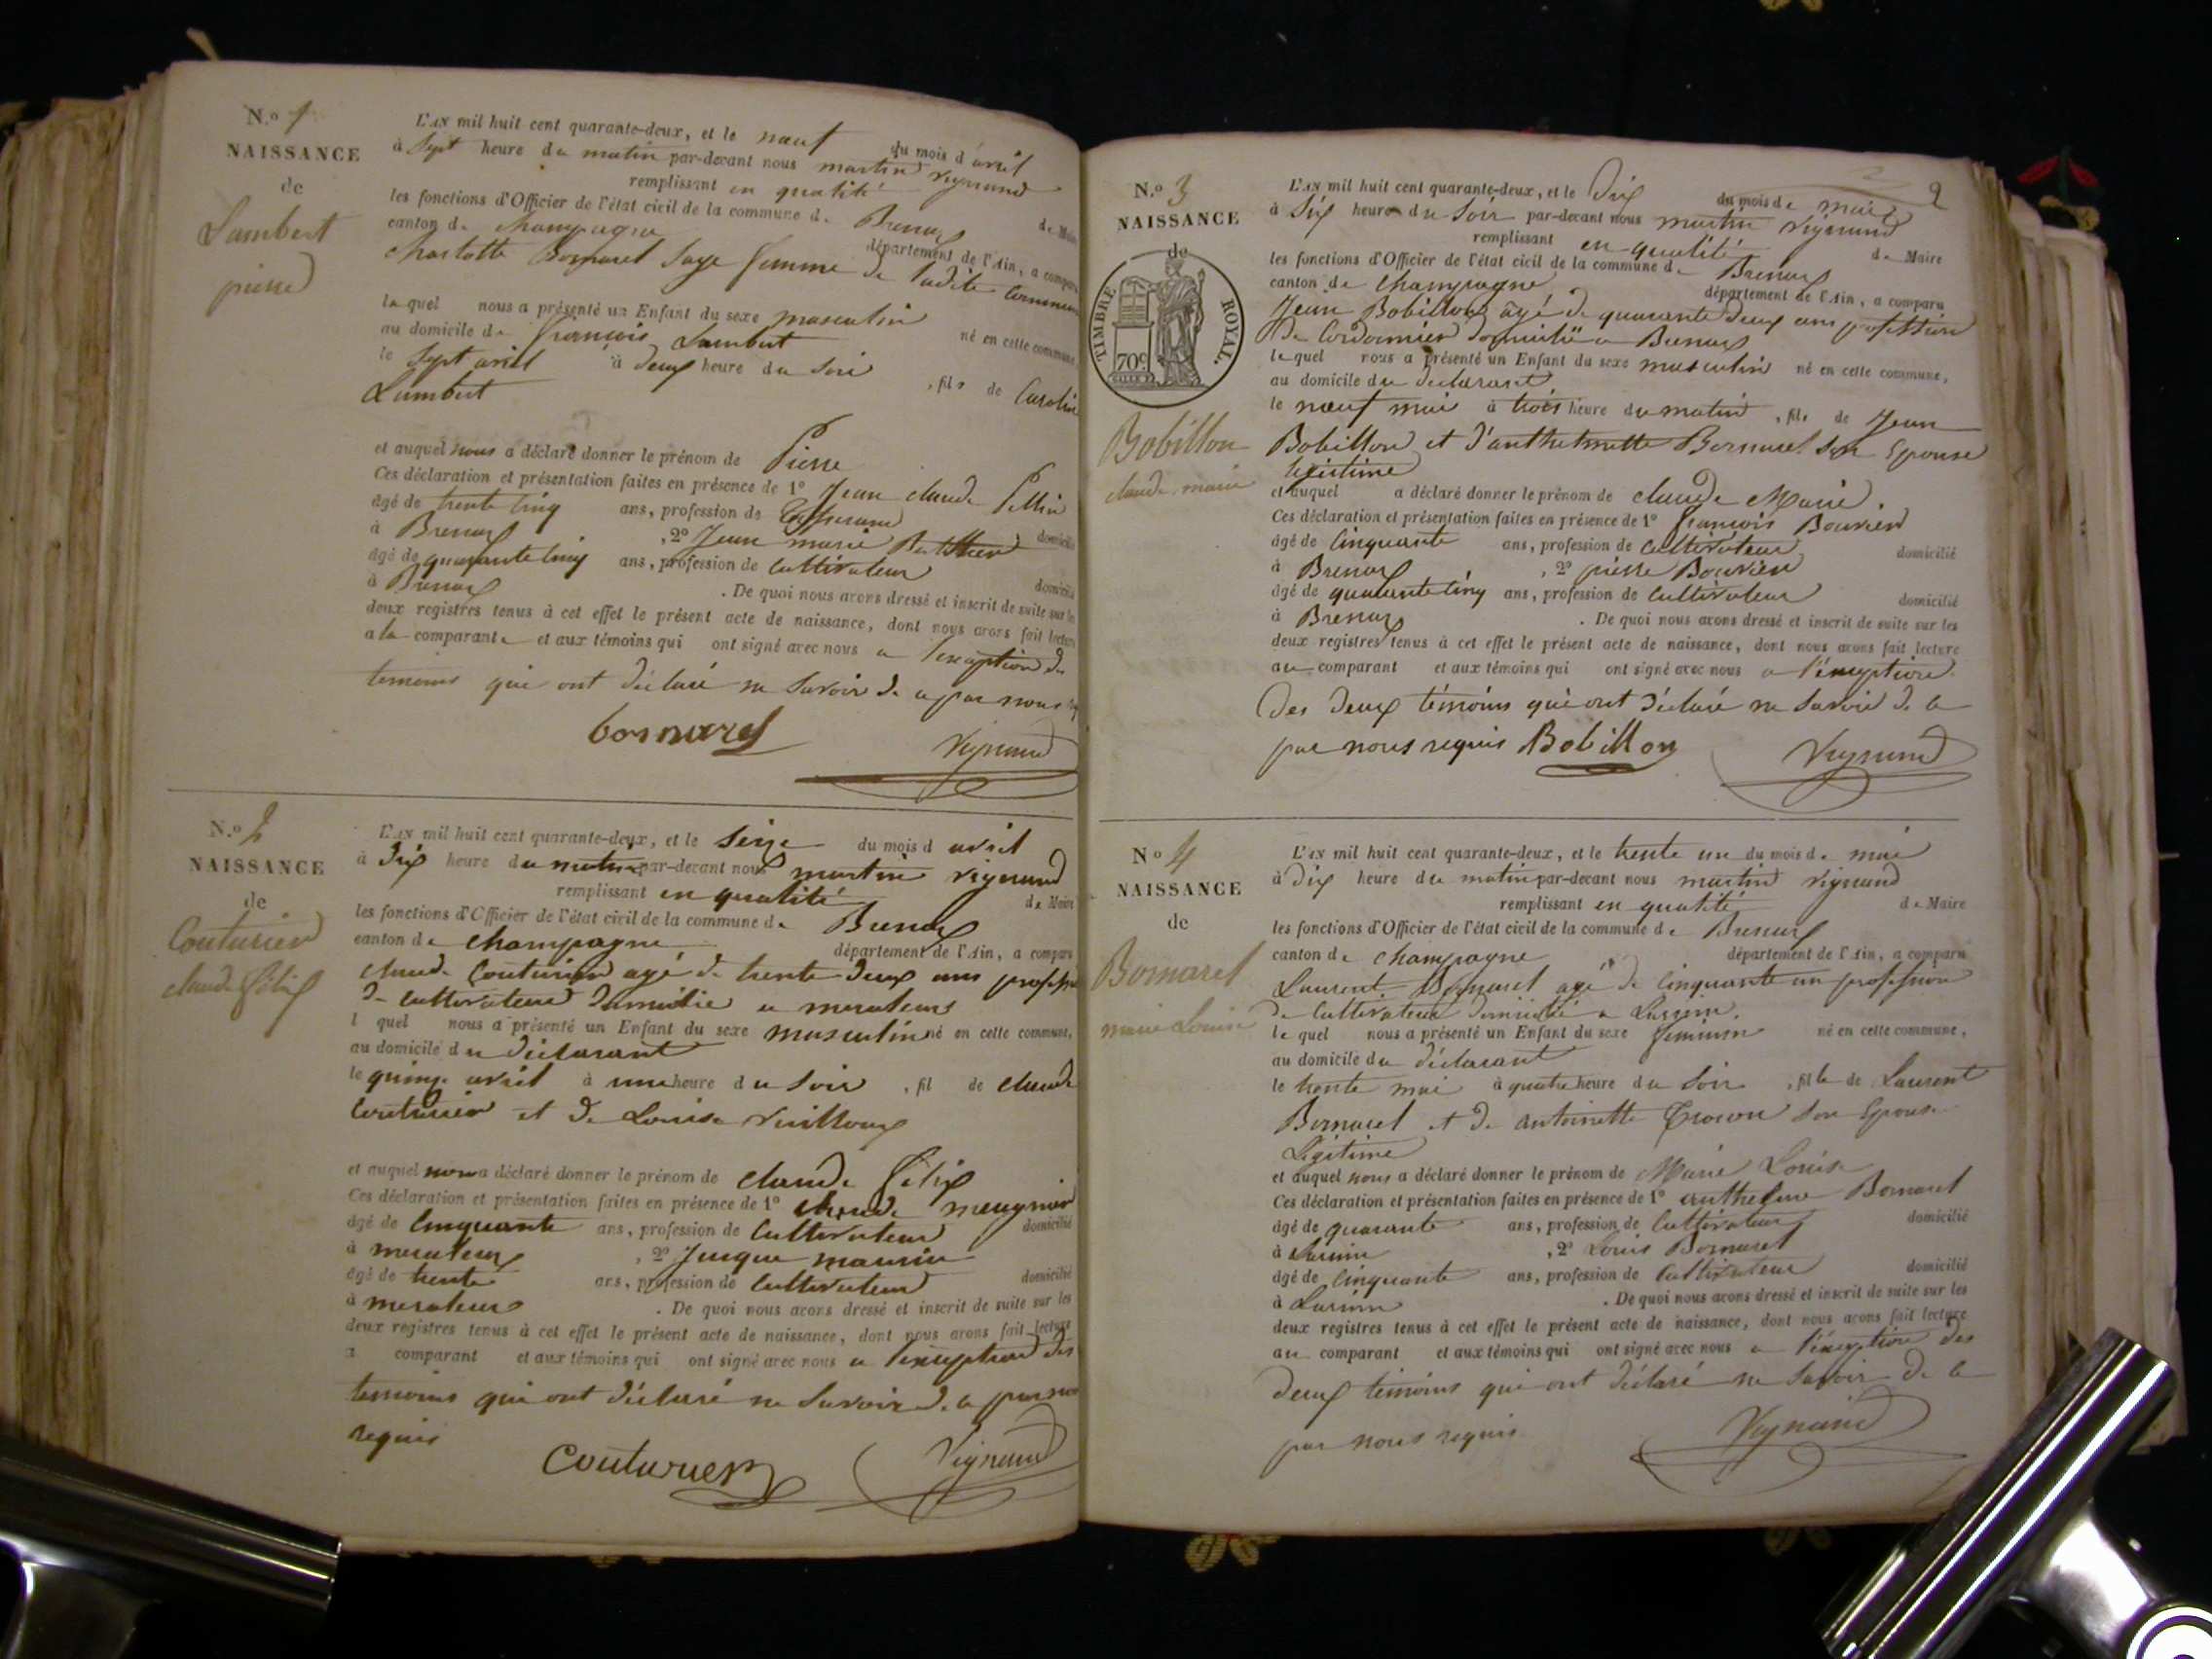 N.o 1
NAISSANCE
de
Lambert
pierre
L'AN mil huit cent quarante-deux, et le nœuf du mois d'avril
à Sept heure du matin par-devant nous martin vignand
remplissant en qualité de Maire
les fonctions d'Officier de l'état civil de la commune de Brenaz
canton de Champagne département de l'Ain, a comparu
charlotte Bornarel Sage femme de ladite Commune
laquel nous a présenté un Enfant du sexe masculin
au domicile de françois Lambert né en cette commune,
le Sept avril à deux heure du Soir , fils de Caroline
Lambert
et auquel nous a déclaré donner le prénom de Pierre
Ces déclaration et présentation faites en présence de 1o Jean claude
âgé de trente Cinq ans, profession de domicilié
à Brenaz , 2o Jean marie
âgé de quarante Cinq ans, profession de Cultivateur domicilié
à Brenaz . De quoi nous avons dressé et inscrit de suite sur les
deux registres tenus à cet effet le présent acte de naissance, dont nous avons fait lecture
a la comparante et aux témoins qui ont signé avec nous a l'exception des
temoins qui ont déclaré ne Savoir de ce par nous
bornarel Vignand
N.o 2
NAISSANCE
de
Couturier
claude félix
L'AN mil huit cent quarante-deux, et le Seize du mois d avril
à Dix heure du matin par-devant nous martin vignand
remplissant en qualité de Maire
les fonctions d'Officier de l'état civil de la commune de Brenaz
canton de Champagne département de l'Ain, a comparu
claude Couturier agé de trente Deux ans profession
de Cultivateur Domicilié a meraleaz
l quel nous a présenté un Enfant du sexe masculin né en cette commune,
au domicile du déclarant
le quinze avril à une heure du Soir , fil de claude
Couturier et de Louise
et auquel nous a déclaré donner le prénom de Claude félix
Ces déclaration et présentation faites en présence de 1o claude meugnier
âgé de Cinquante ans, profession de Cultivateur domicilié
à meraleaz , 2o Jacque
âgé de trente ans, profession de Cultivateur domicilié
à meraleaz . De quoi nous avons dressé et inscrit de suite sur les
deux registres tenus à cet effet le présent acte de naissance, dont nous avons fait lecture
a comparant et aux témoins qui ont signé avec nous a l'exception des
temoins qui ont déclaré ne Savoir de ce par nous
requis
Couturier Vignand
2
N.o 3
NAISSANCE
de
TIMBRE ROYAL.
70c
Bobillon
claude marie
L'AN mil huit cent quarante-deux, et le Dix du mois de mai
à Six heure du Soir par-devant nous martin vignand
remplissant en qualité de Maire
les fonctions d'Officier de l'état civil de la commune de Brenaz
canton de Champagne département de l'Ain, a comparu
Jean Bobillon agé de quarante deux ans profession
De Cordonnier domicilié a Brenaz
lequel nous a présenté un Enfant du sexe masculin né en cette commune,
au domicile du declarant
le nœuf mai à trois heure du matin , fils de Jean
Bobillon et d'anthelmette Bornarel Son Epouse
legitime
et auquel a déclaré donner le prénom de claude Marie
Ces déclaration et présentation faites en présence de 1o françois Bouvier
âgé de Cinquante ans, profession de Cultivateur domicilié
à Brenaz , 2o pierre Bouvier
âgé de quarante Cinq ans, profession de Cultivateur domicilié
à Brenaz . De quoi nous avons dressé et inscrit de suite sur les
deux registres tenus à cet effet le présent acte de naissance, dont nous avons fait lecture
au comparant et aux témoins qui ont signé avec nous a l'exception
Des Deux témoins qui ont déclaré ne Savoir de ce
par nous requis Bobillon Vignand
No 4
NAISSANCE
de
Bornarel
marie Louise
L'AN mil huit cent quarante-deux, et le trente un du mois de mai
à Dix heure du matin par-devant nous martin vignand
remplissant en qualité de Maire
les fonctions d'Officier de l'état civil de la commune de Brenaz
canton de Champagne département de l'Ain, a comparu
Laurent Bornarel agé de Cinquante un profession
de Cultivateur Domicilié a
lequel nous a présenté un Enfant du sexe feminin né en cette commune,
au domicile du déclarant
le trente mai à quatre heure du Soir , fille de Laurent
Bornarel et de antoinette Son Epouse
Légitime
et auquel nous a déclaré donner le prénom de Marie Louise
Ces déclaration et présentation faites en présence de 1o anthelme Bornarel
âgé de quarante ans, profession de Cultivateur domicilié
à , 2o Louis Bornarel
âgé de Cinquante ans, profession de Cultivateur domicilié
à . De quoi nous avons dressé et inscrit de suite sur les
deux registres tenus à cet effet le présent acte de naissance, dont nous avons fait lecture
au comparant et aux témoins qui ont signé avec nous a l'exception des
Deux temoins qui ont déclaré ne Savoir de ce
par nous requis Vignand